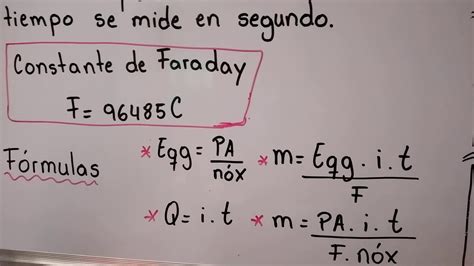 tiempo se mide en segundo.
Constante de Faraday
F= 96485C
Fórmulas
* Eqg = PA / nóx
* m = Eqg . i . t / F
* Q = i . t
* m = PA . i . t / F. nóx